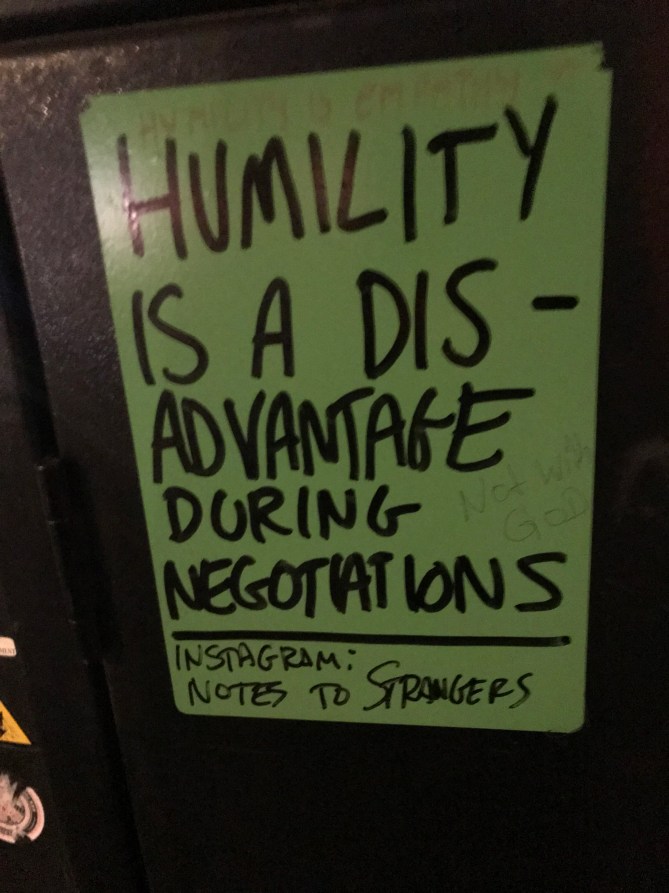 HUMILITY IS EMPATHY
HUMILITY
IS A DIS-
ADVANTAGE
DURING
NEGOTIATIONS
Not with
GOD
INSTAGRAM:
NOTES TO STRANGERS